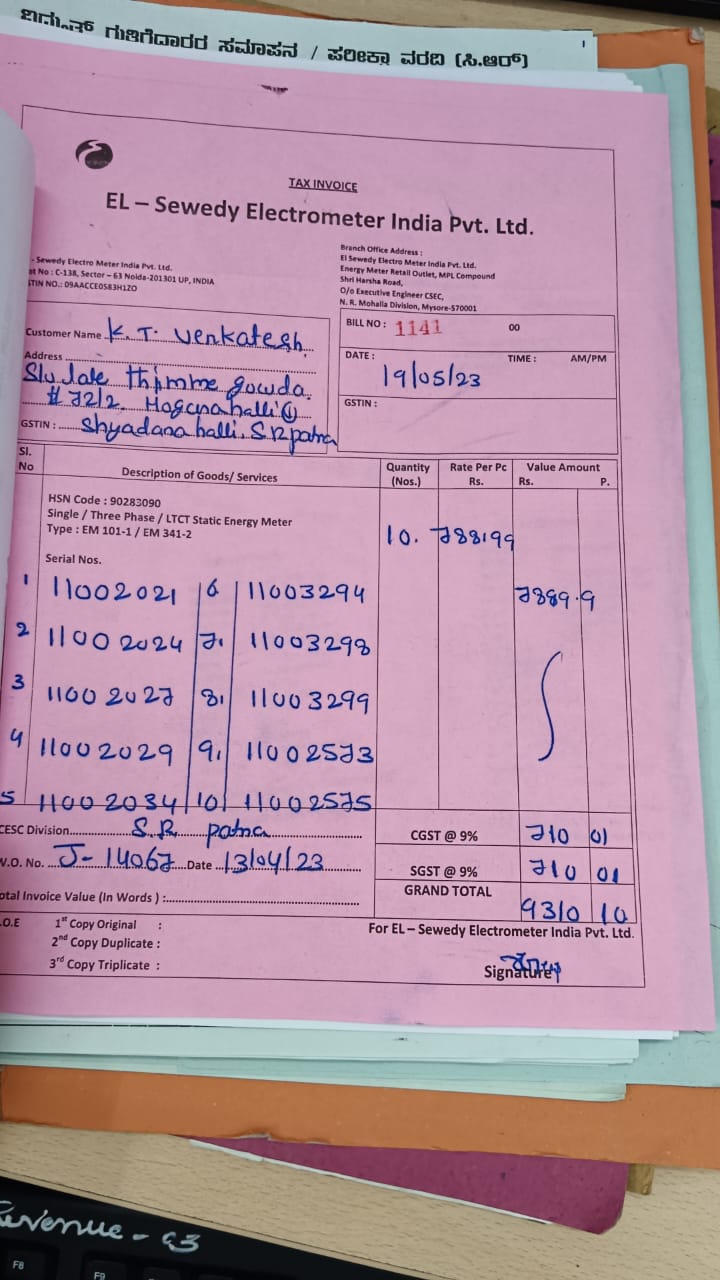 ಗುತ್ತಿಗೆದಾರರ ಸಮಾಪನ / ಪರೀಕ್ಷಾ ವರದಿ (ಸಿ.ಆರ್)
TAX INVOICE
EL – Sewedy Electrometer India Pvt. Ltd.
- Sewedy Electro Meter India Pvt. Ltd.
at No : C-138, Sector – 63 Noida-201301 UP, INDIA
STIN NO.: 09AACCE0583H1ZO
Branch Office Address :
El Sewedy Electro Meter India Pvt. Ltd.
Energy Meter Retail Outlet, MPL Compound
Shri Harsha Road,
O/o Executive Engineer CSEC,
N. R. Mohalla Division, Mysore-570001
Customer Name K. T. Venkatesh
Address
S/o late Thimme gowda.
# 72/2. Hoganahalli
GSTIN : Shyadanahalli. S.R patna
BILL NO : 1141 00
DATE : TIME : AM/PM
19/05/23
GSTIN :
Sl. No Description of Goods/ Services Quantity (Nos.) Rate Per Pc Rs. Value Amount Rs. P.
HSN Code : 90283090
Single / Three Phase / LTCT Static Energy Meter
Type : EM 101-1 / EM 341-2
10. 788.99
Serial Nos.
1 11002021 6 11003294 7889.9
2 11002024 7. 11003298
3 11002027 8. 11003299
4 11002029 9. 11002573
5 11002034 10 11002575
CESC Division S.R patna
CGST @ 9% 710 01
V.O. No. J-14067 Date 13/04/23
SGST @ 9% 710 01
GRAND TOTAL 9310 10
otal Invoice Value (In Words ) :
.O.E 1st Copy Original :
2nd Copy Duplicate :
3rd Copy Triplicate :
For EL – Sewedy Electrometer India Pvt. Ltd.
Signature
Revenue - 93
F8
F9